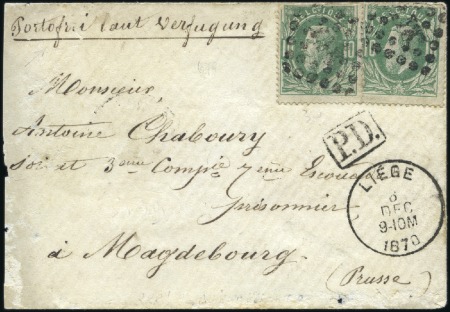 Portofrei laut Verfugung
Monsieur,
Antoine Chaboury
Soldat et 3eme Compie 7eme Escouade
prisonnier
à Magdebourg
(Prusse)
P.D.
LIÉGE
DEC
9-10M
1870